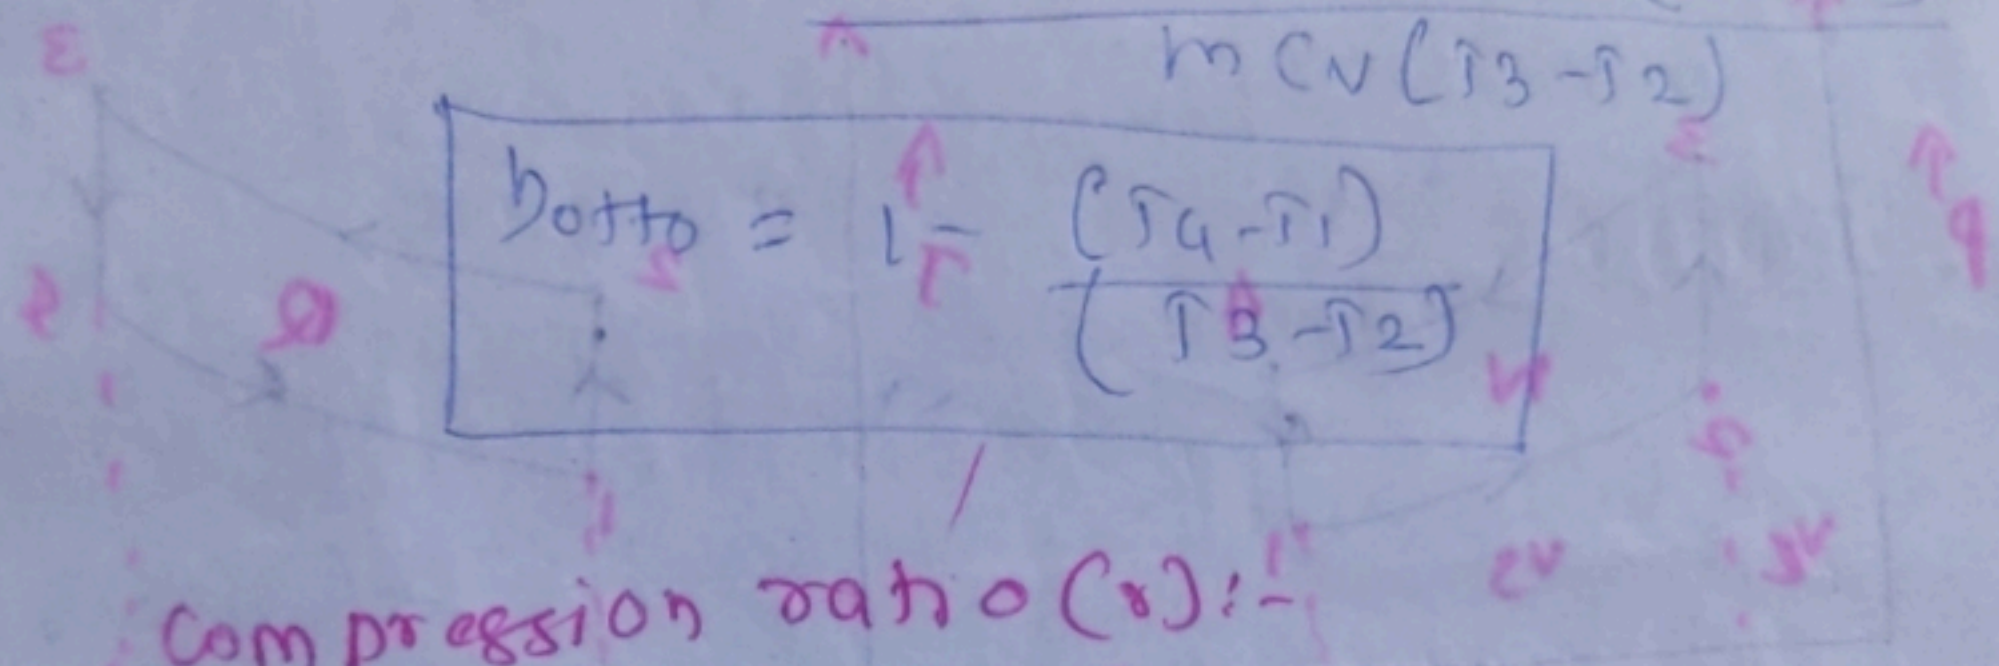 m Cv (T3 - T2)
ηotto = 1 - (T4 - T1)
(T3 - T2)
Compression ratio (r) :-